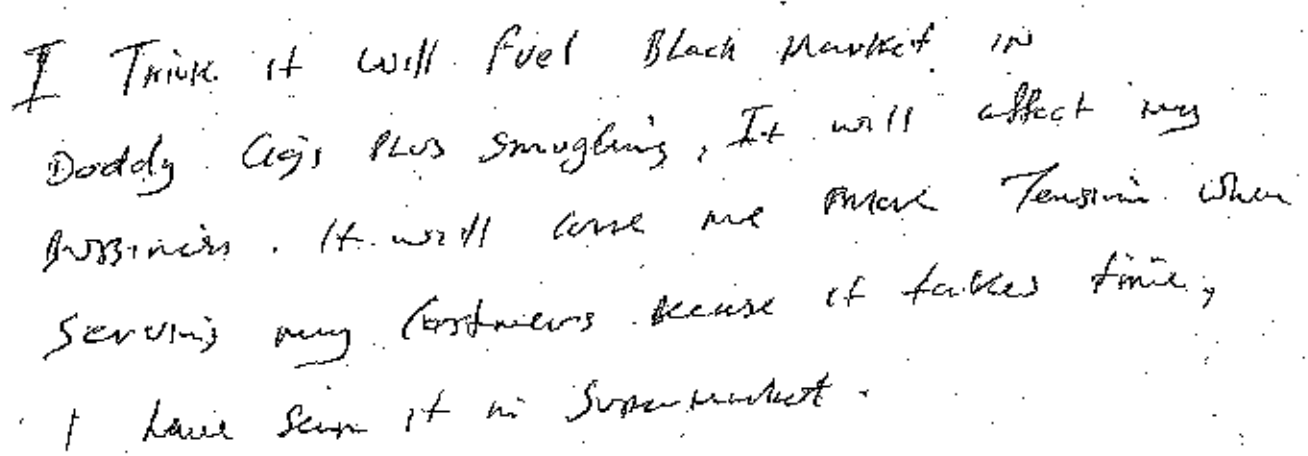 I Think it will fuel Black Market in
Doddy Cigs Plus Smugling, It will affect my
Bussiness. It will cause me more Tension when
Serving my Costmers becuse it takes time,
I have seen it in Supermarket.